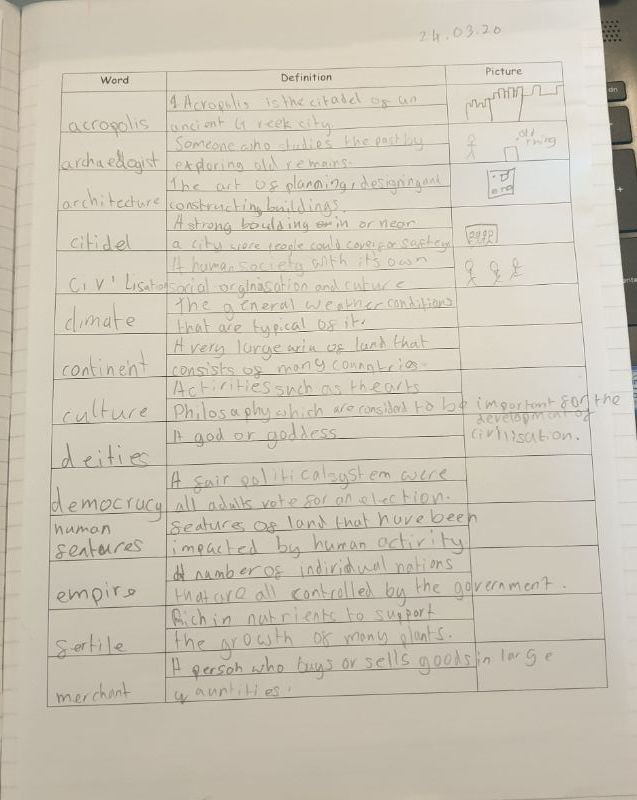 24.03.20
Word Definition Picture
acropolis
Acropolis is the citadel of an
ancient Greek city.
archaeologist
Someone who studies the past by
exploring old remains.
old thing
architecture
The art of planning, designing and
constructing buildings.
citidel
A strong boulding in or near
a city were people could cover for saftey
civ'lisation
A human society with its own
sorial orginasation and cuture
climate
The general weather conditions
that are typical of it.
continent
A very large aria of land that
consists of many conntries.
culture
Activities such as the arts
Philosaphy which are considerd to be important for the
development of
civilisation.
deities
A god or goddess
democracy
A fair political system were
all adults vote for an election.
human
features
features of land that have been
impacted by human activity
empire
A number of individual nations
that are all controlled by the government.
fertile
Rich in nutrients to support
the growth of many plants.
merchant
A person who buys or sells goods in large
quantities.